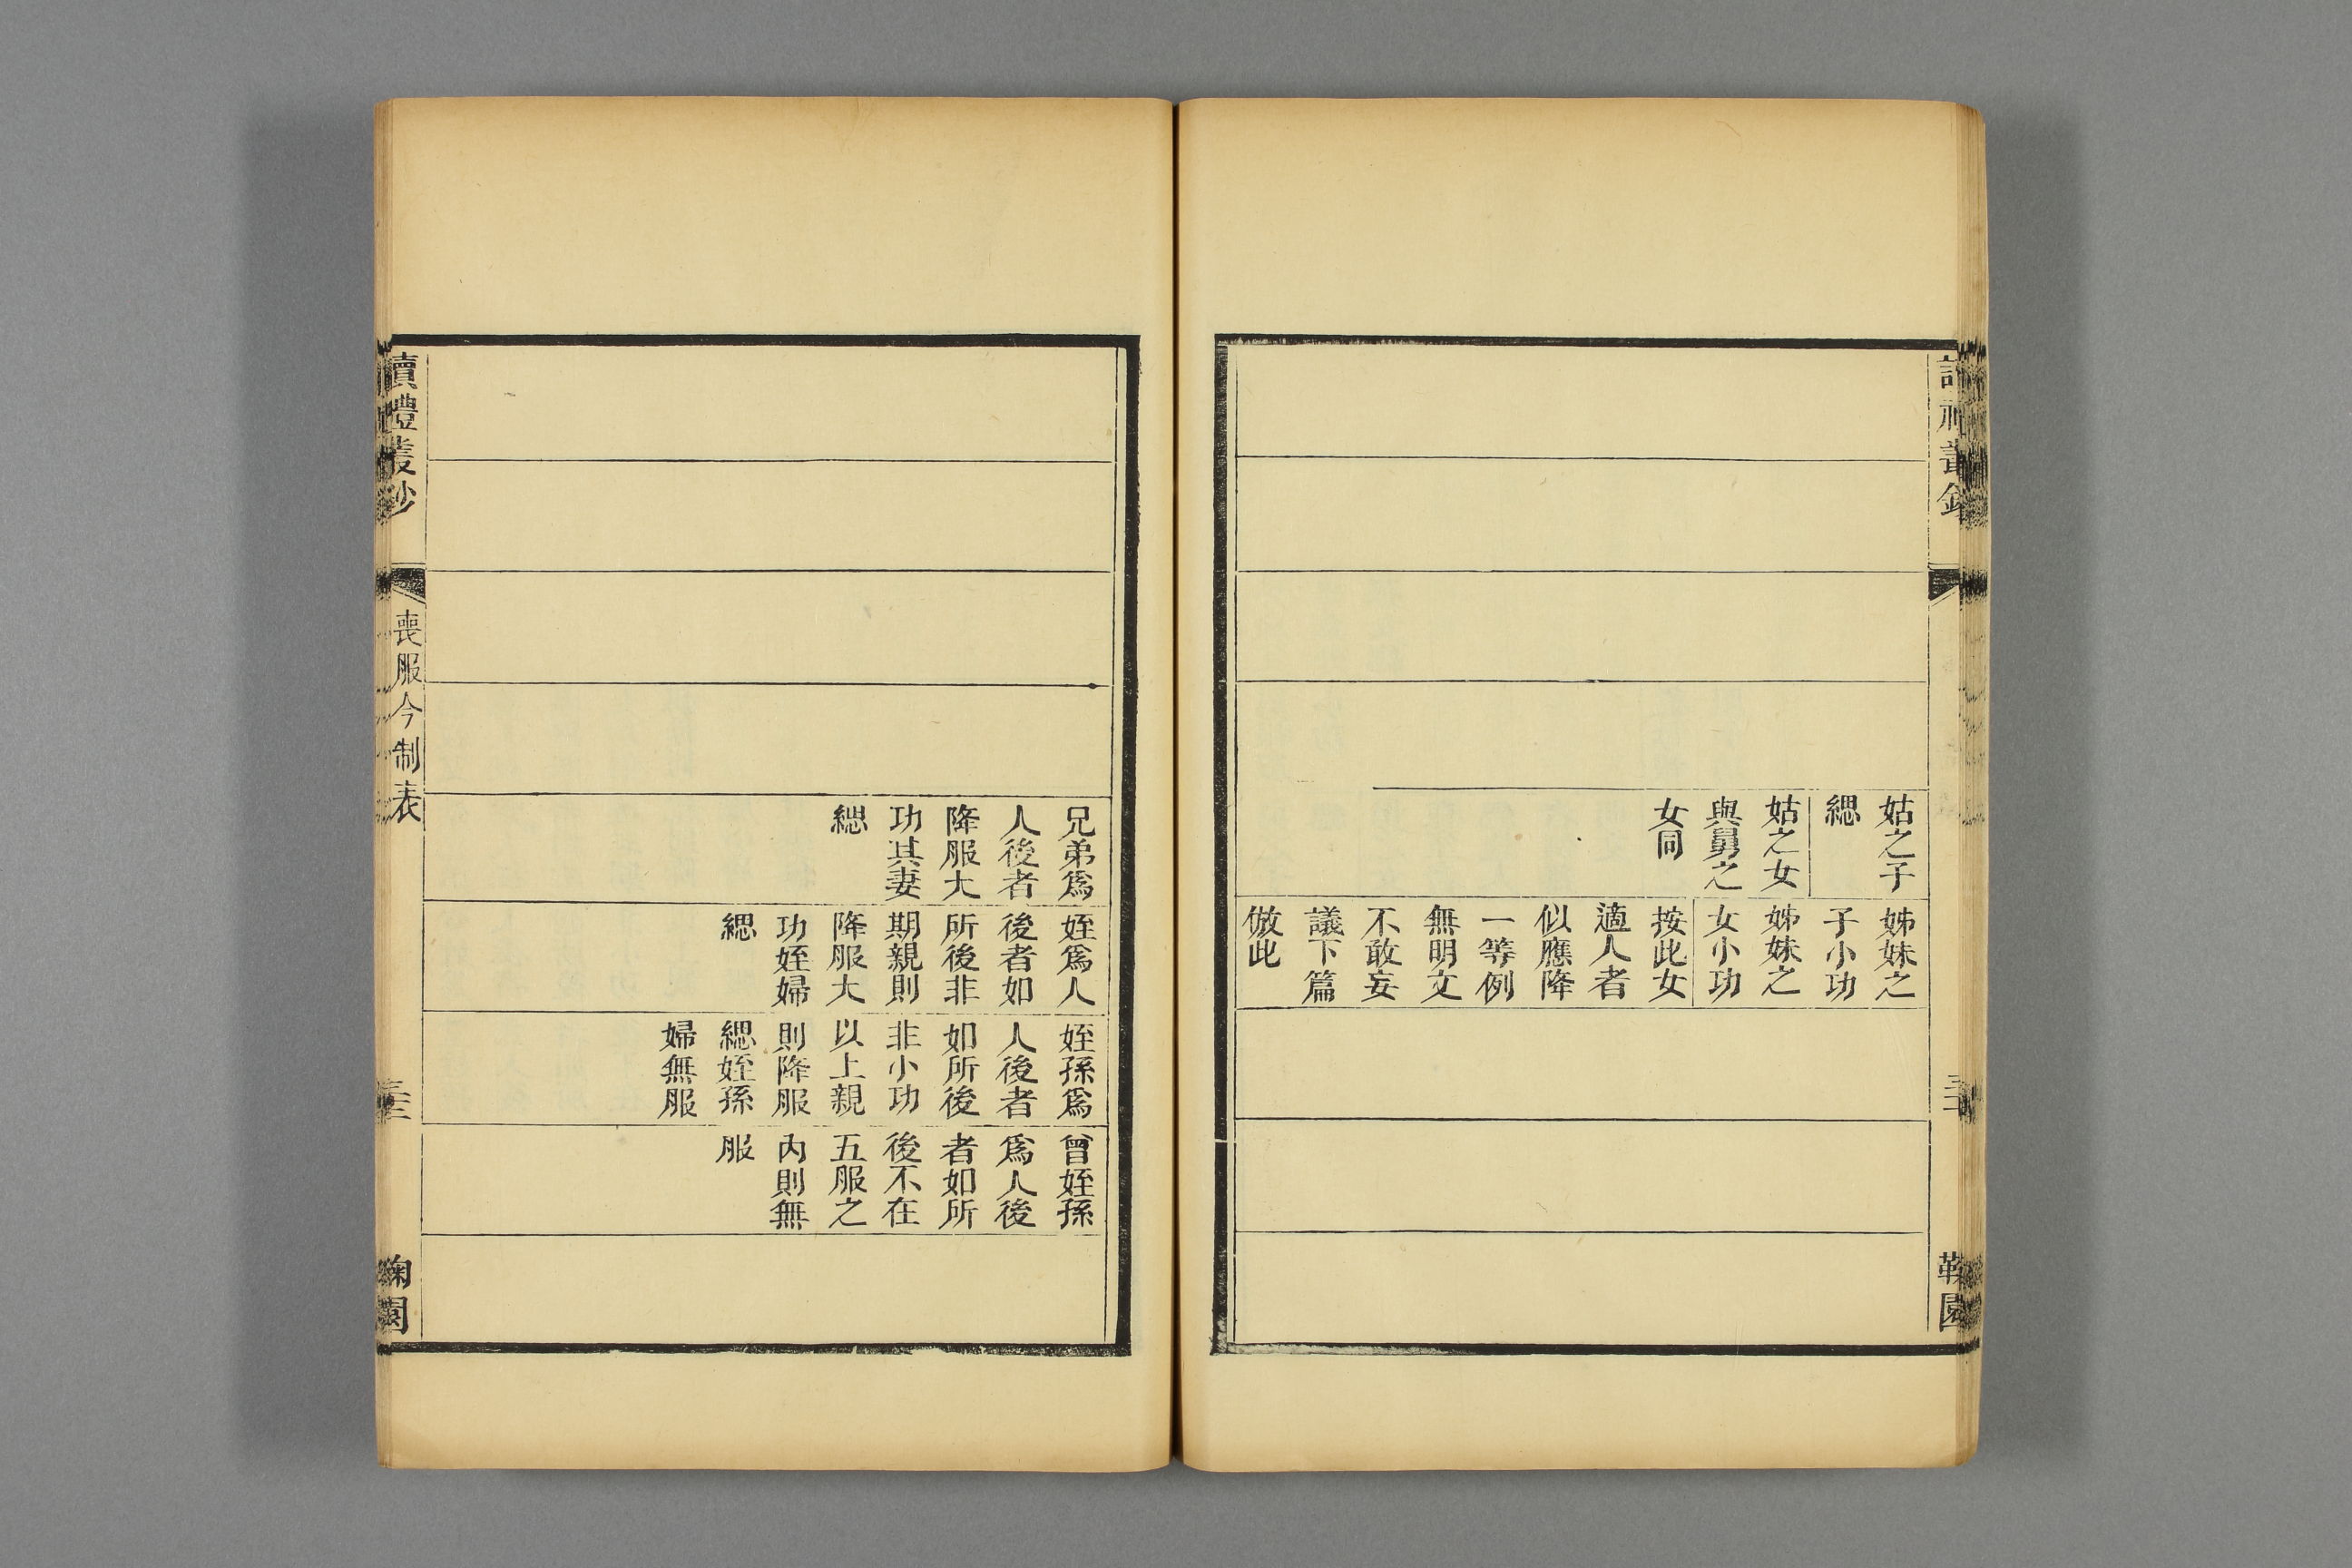 姑之子
緦
姑之女
與舅之
女同
姊妹之
子小功
姊妹之
女小功
按此女
適人者
似應降
一等例
無明文
不敢妄
議下篇
倣此
讀禮叢鈔
喪服今制表
兄弟爲
人後者
降服大
功其妻
緦
姪爲人
後者如
所後非
期親則
降服大
功姪婦
緦
姪孫爲
人後者
如所後
非小功
以上親
則降服
緦姪孫
婦無服
曾姪孫
爲人後
者如所
後不在
五服之
內則無
服
鞠園